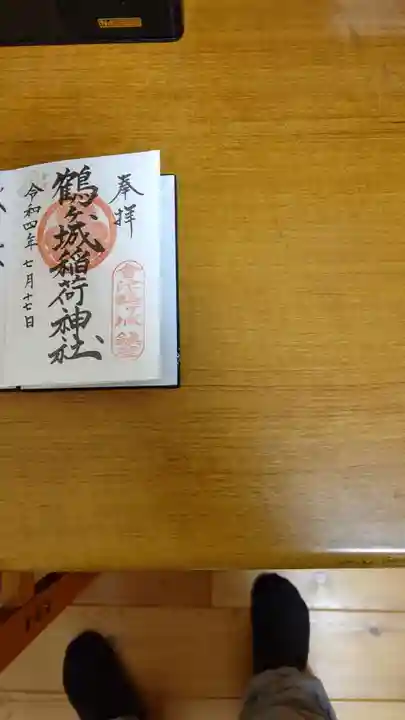 奉拝
鶴ヶ城稲荷神社
令和四年七月十七日